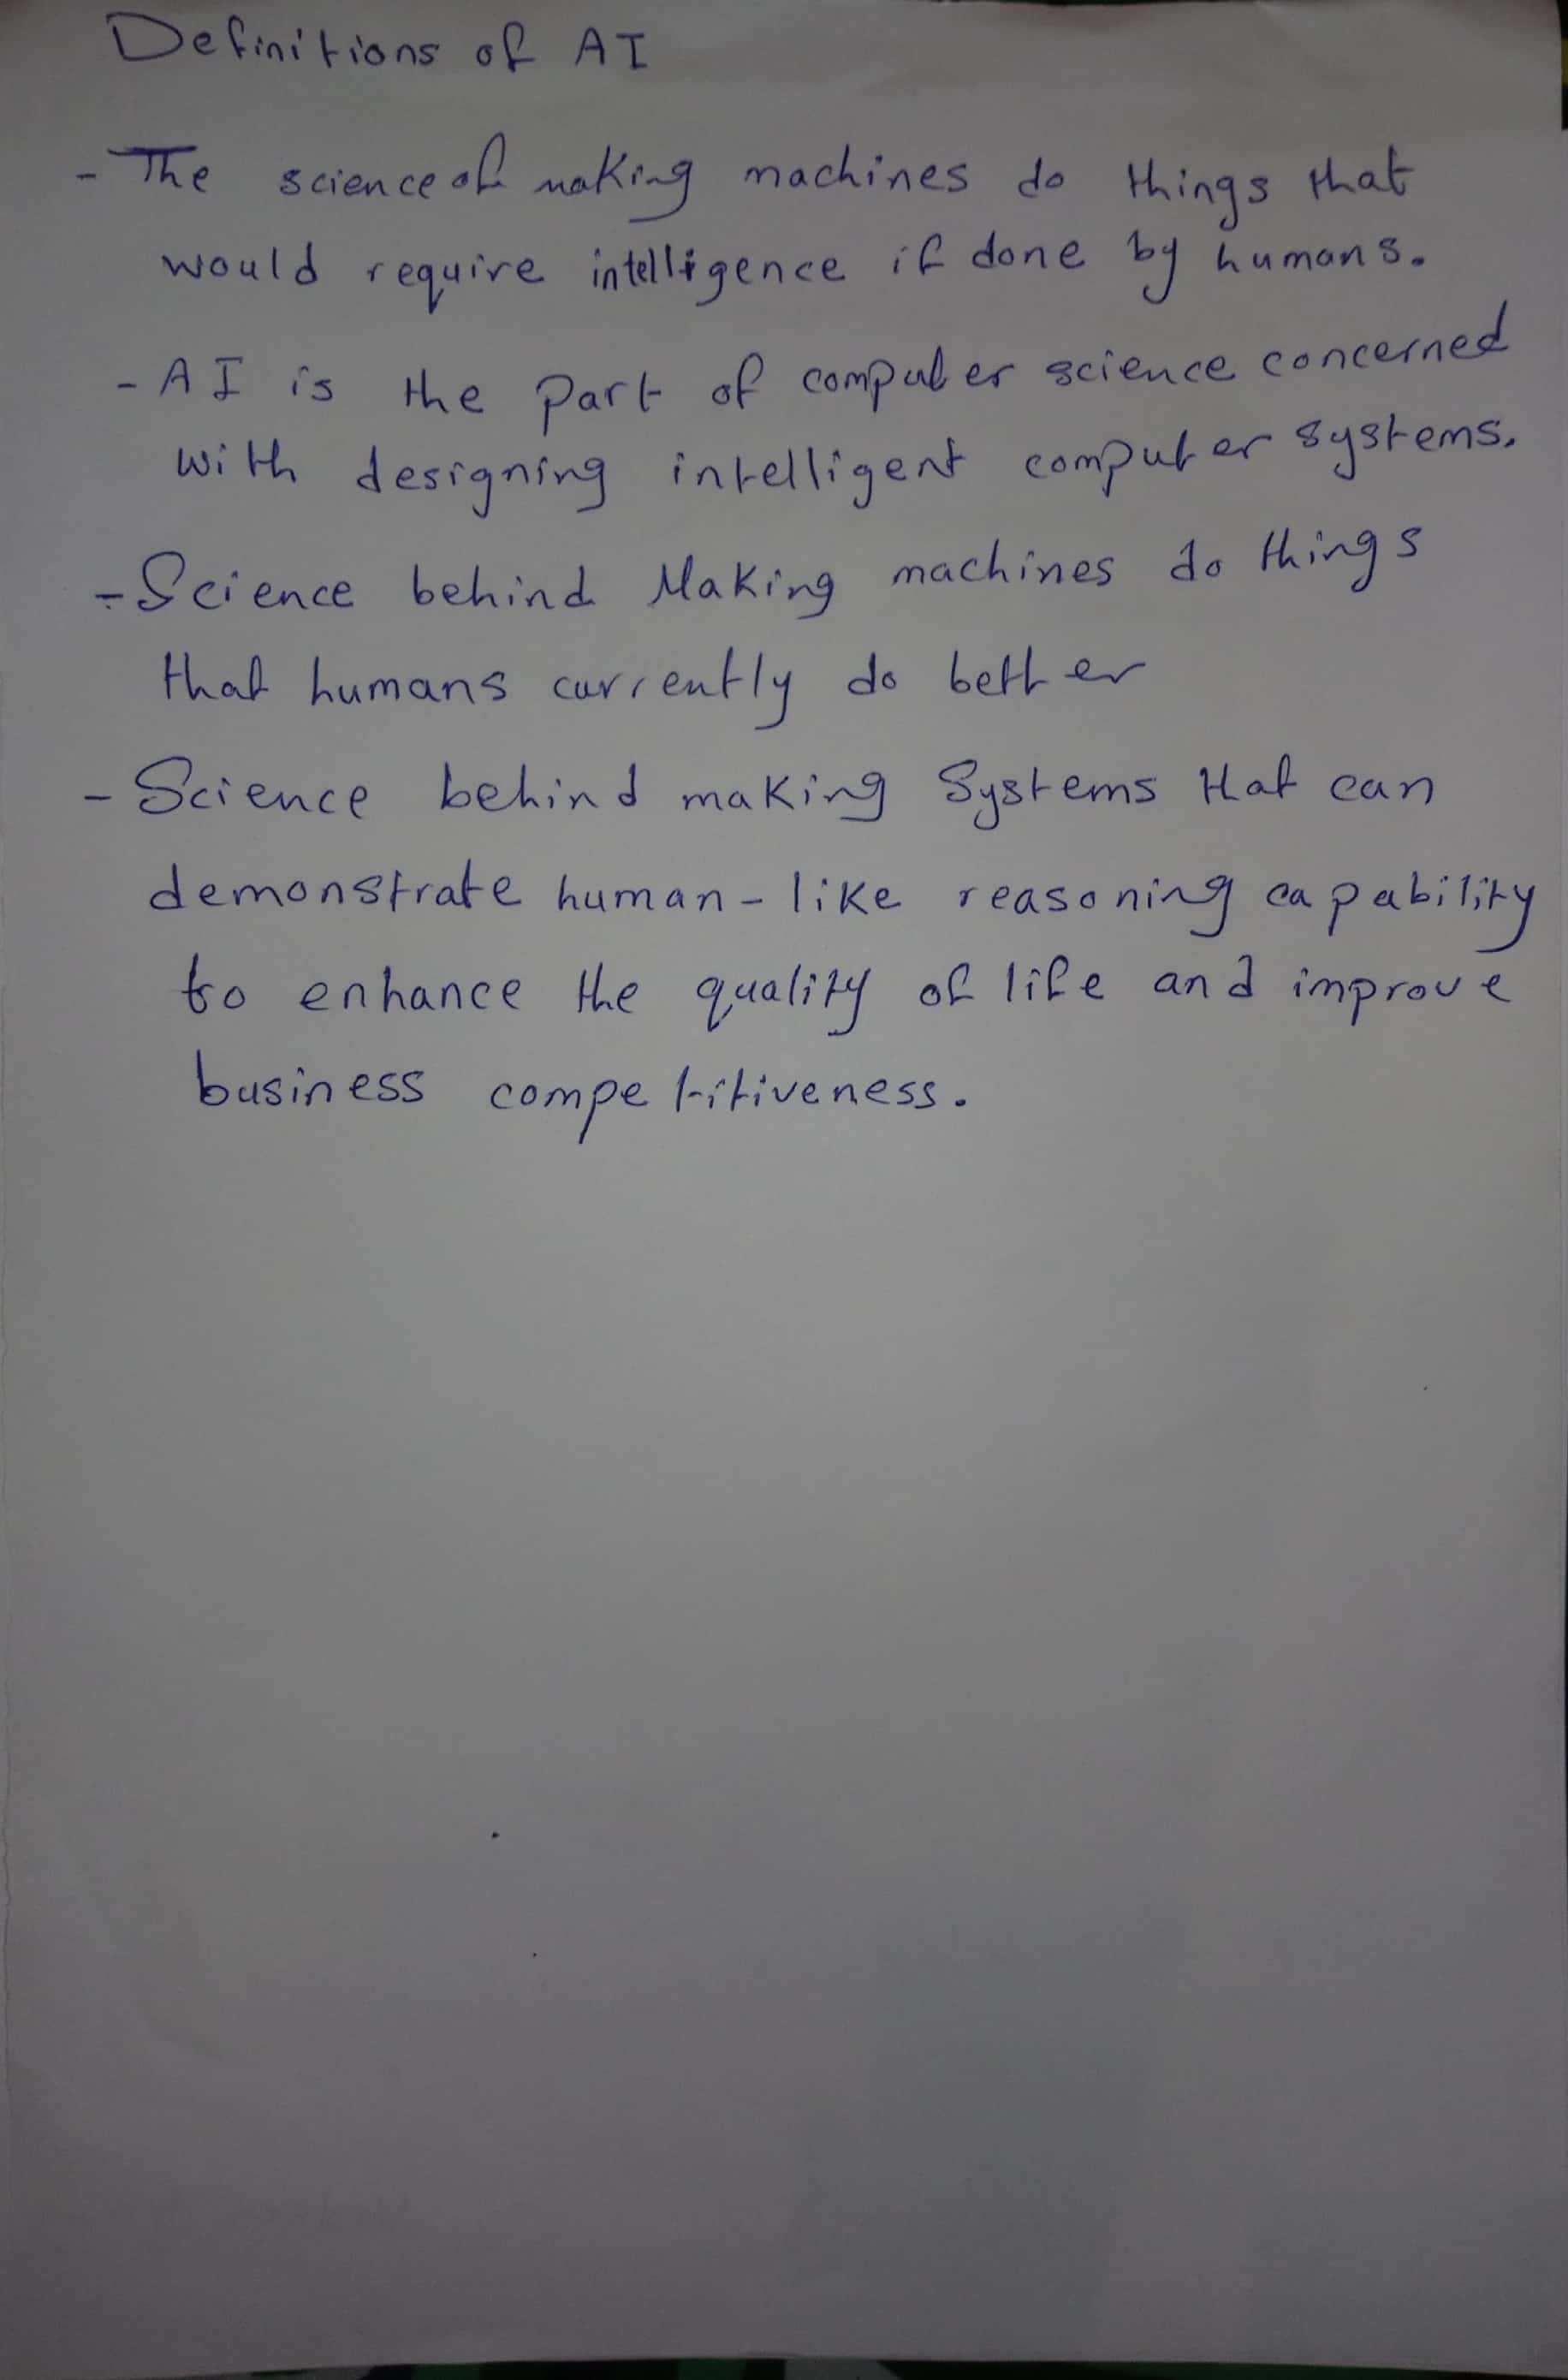 Definitions of AI
- The science of making machines do things that
would require intelligence if done by humans.
- AI is the part of computer science concerned
with designing intelligent computer systems.
- Science behind Making machines do things
that humans currently do better
- Science behind making Systems that can
demonstrate human-like reasoning capability
to enhance the quality of life and improve
business competitiveness.